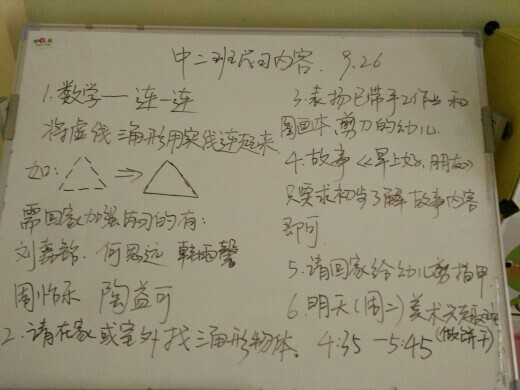 中二班复习内容. 9.26
1.数学—连一连
将虚线三角形用实线连起来
如:
需回家加强复习的有:
何思远 韩雨馨
周怡乐 陶益可
2.请在家或室外找三角形物体.
3.表扬已带手工作业和
图画本、剪刀的幼儿
4.故事《早上好,朋友》
只要求初步了解故事内容
即可.
5.请回家给幼儿剪指甲.
6.明天(周二)美术
(做饼干)
4:35-5:45